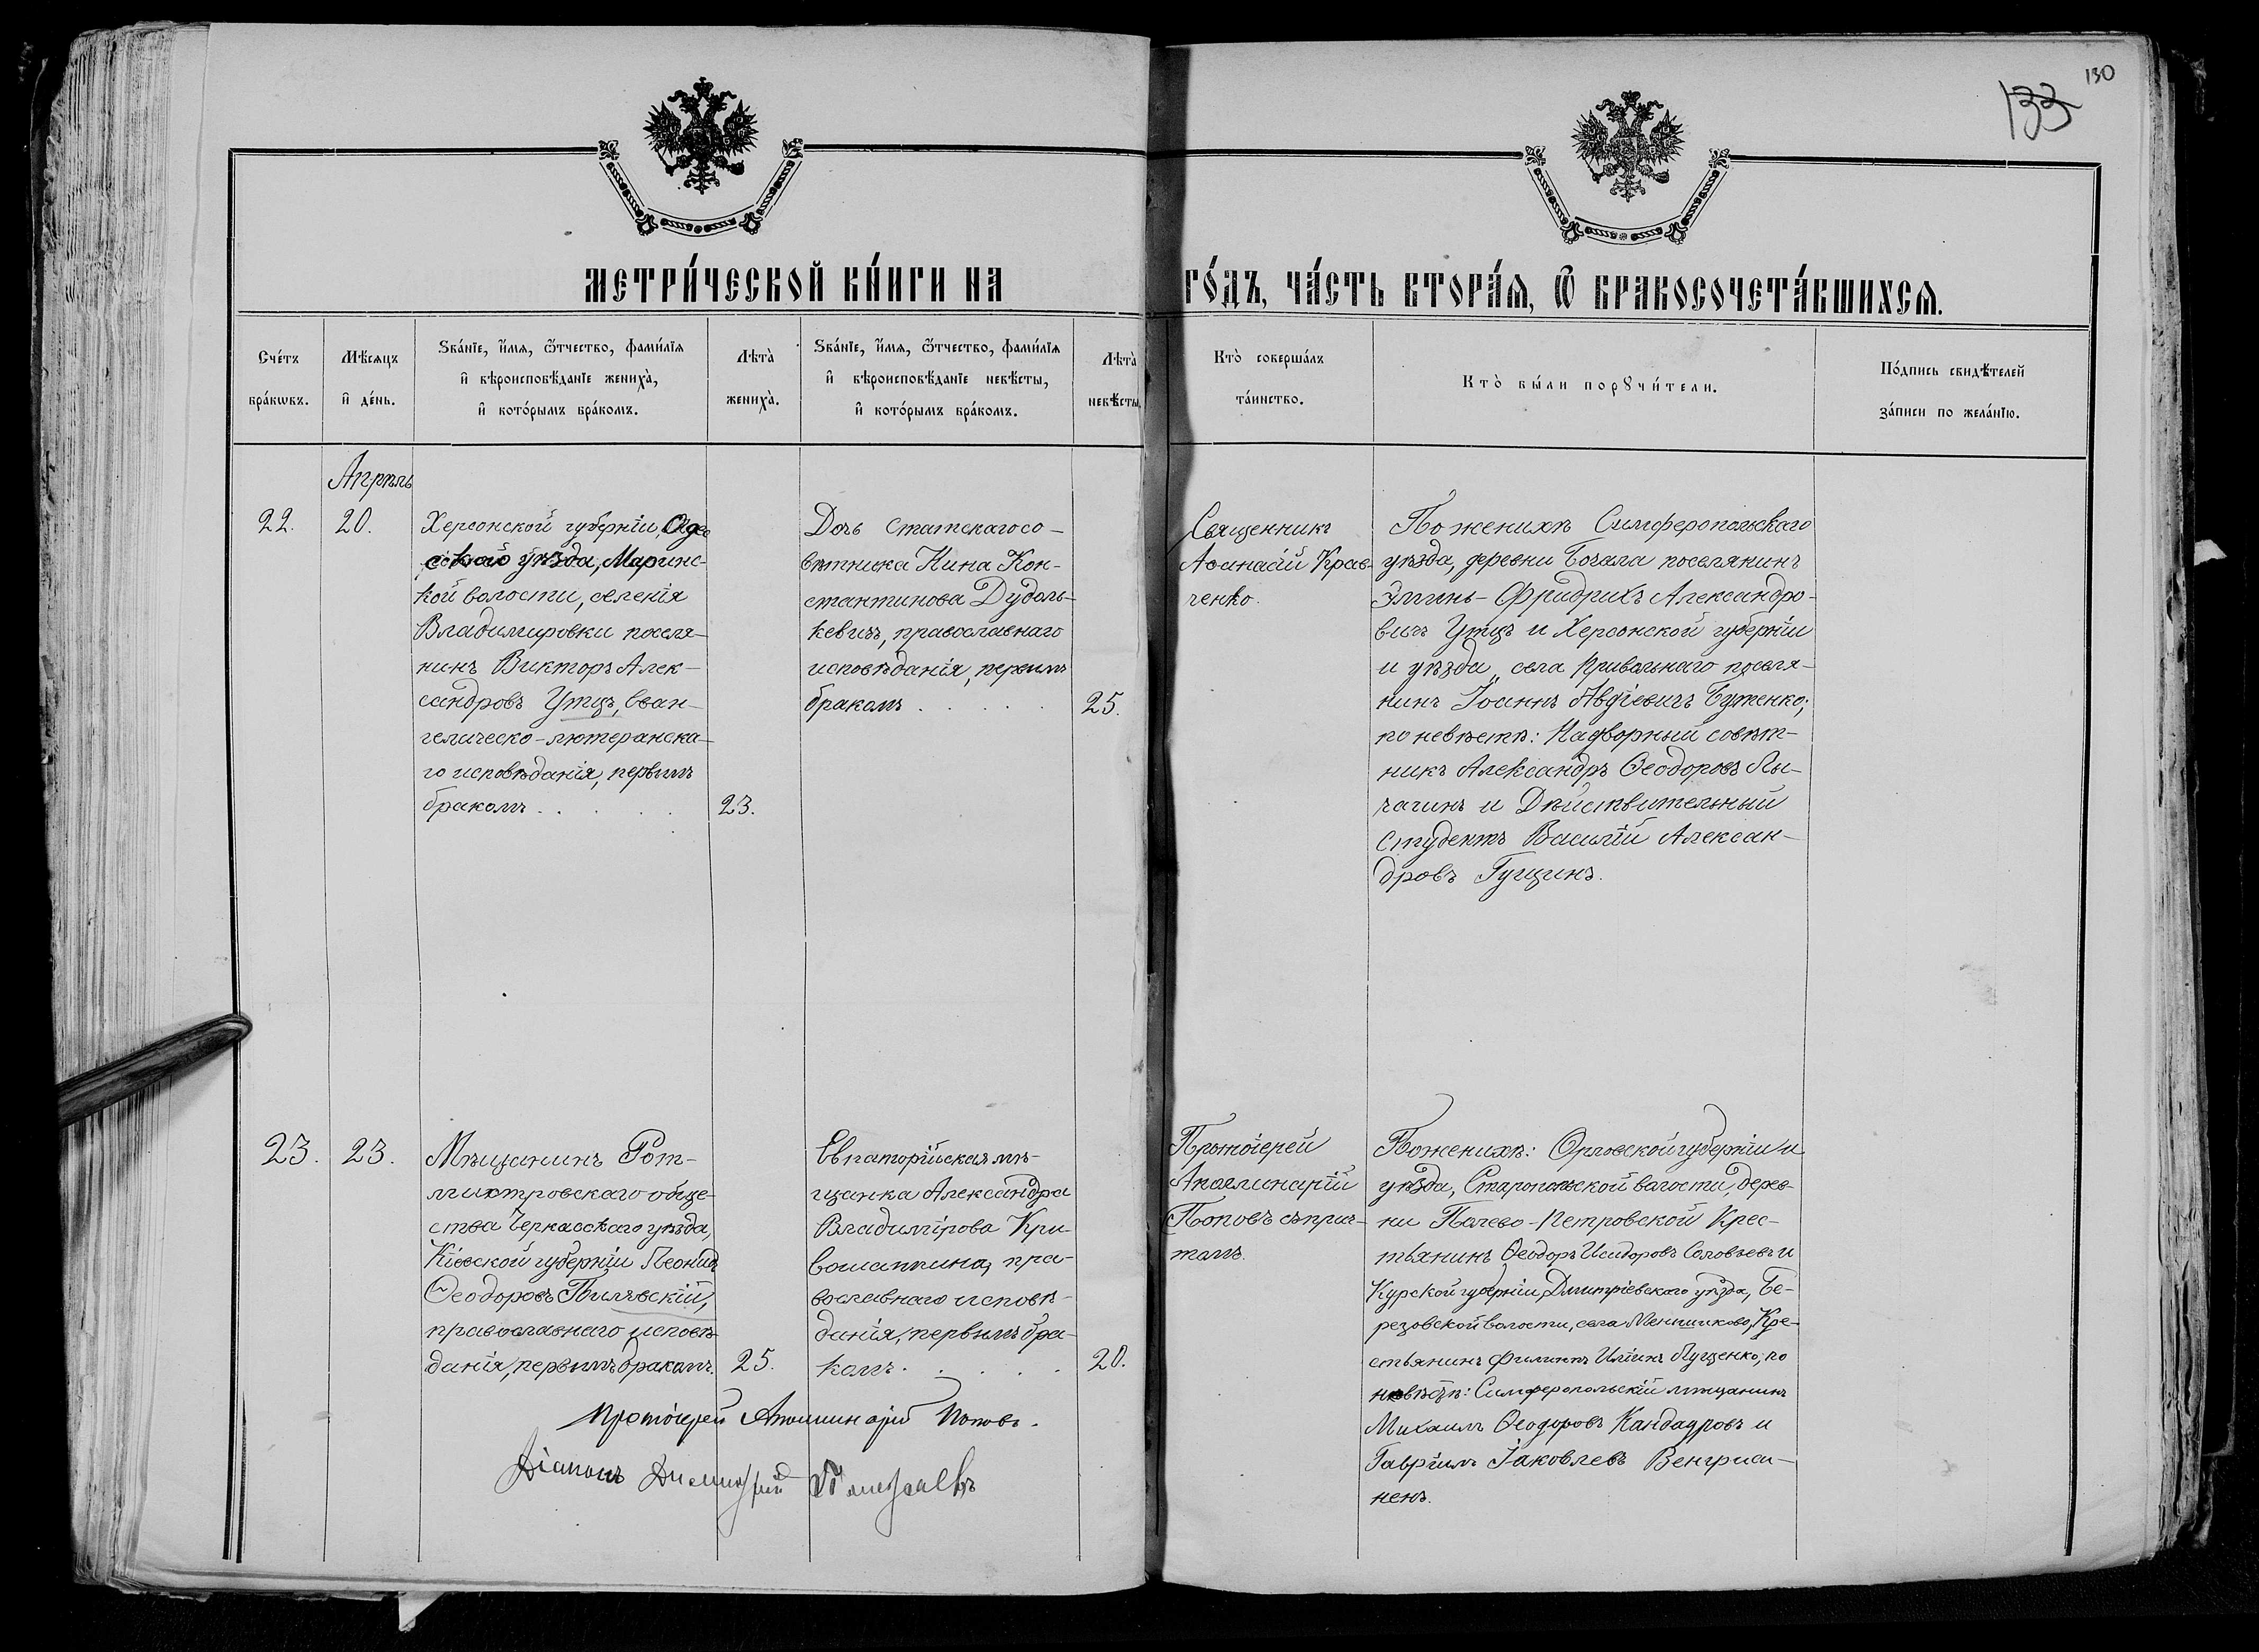 130
133
МЕТРИ́ЧЕСКОЙ КНИ́ГИ НА ГО́ДЪ, ЧА́СТЬ ВТОРА́Ѧ, Ѿ БРАКОСОЧЕТА́ВШИХСѦ.
Сче́тъ
бра́кѡвъ.
Мѣ́сѧцъ
и҆ де́нь.
Ѕва́нїе, и҆́мѧ, ѻ҆́тчество, фами́лїѧ
и҆ вѣроисповѣ́данїе жениха̀,
и҆ кото́рымъ бра́комъ.
Лѣта̀
жениха̀.
Ѕва́нїе, и҆́мѧ, ѻ҆́тчество, фами́лїѧ
и҆ вѣроисповѣ́данїе невѣ́сты,
и҆ кото́рымъ бра́комъ.
Лѣта̀
невѣ́сты.
Кто̀ соверша́лъ
та́инство.
Кто̀ бы́ли порꙋчи́тели.
По́дпись свидѣ́телей
за́писи по жела́нїю.
Апрѣль
22.
20.
Херсонской губерніи, Одес
сскаго уѣзда, Маринс-
кой волости, селенія
Владимировки поселя-
нинъ Викторъ Алек-
сандровъ Утцъ, еван-
гелическо-лютеранска-
го исповѣданія, первымъ
бракомъ . . . .
23.
Дочь статскаго со-
вѣтника Нина Кон-
стантинова Дудоль-
кевичъ, православнаго
исповѣданія, первымъ
бракомъ . . . . .
25.
Священникъ
Аѳанасій Крав-
ченко.
По женихѣ Симферопольскаго
уѣзда, деревни Бочала поселянинъ
Эминь-Фридрихъ Александро-
вичъ Утцъ и Херсонской губерніи
и уѣзда, села Привольнаго поселя-
нинъ Іоаннъ Авдіевичъ Буженко;
по невѣстѣ: Надворный совѣт-
никъ Александръ Ѳеодоровъ Лы-
чагинъ и Дѣйствительный
Студентъ Василій Алексан-
дровъ Гущинъ.
23.
23.
Мѣщанинъ Рот-
мистровскаго обще-
ства Черкасскаго уѣзда,
Кіевской губерніи Леонидъ
Ѳеодоровъ Билевскій,
православнаго исповѣ-
данія, первымъ бракомъ.
25.
Евпаторійская мѣ-
щанка Александра
Владимірова Кри-
вошапкина, пра-
вославнаго исповѣ-
данія, первымъ бра-
комъ . . . . .
20.
Протоіерей
Аполлинарій
Поповъ съ прич-
томъ.
По женихѣ: Орловской губерніи и
уѣзда, Старопольской волости, дерев-
ни Полево-Петровской Крес-
тьянинъ Ѳеодоръ Исидоровъ Соловьевъ и
Курской губерніи, Дмитріевскаго уѣзда, Бе-
резовской волости, села Меньшиково, Кре-
стьянинъ Филиппъ Иліинъ Луценко; по
невѣстѣ: Симферопольскій мѣщанинъ
Михаилъ Ѳеодоровъ Кандауровъ и
Гавріилъ Іаковлевъ Венгриса-
ненъ.
Протоіерей Аполлинарій Поповъ.
Діаконъ Димитрій